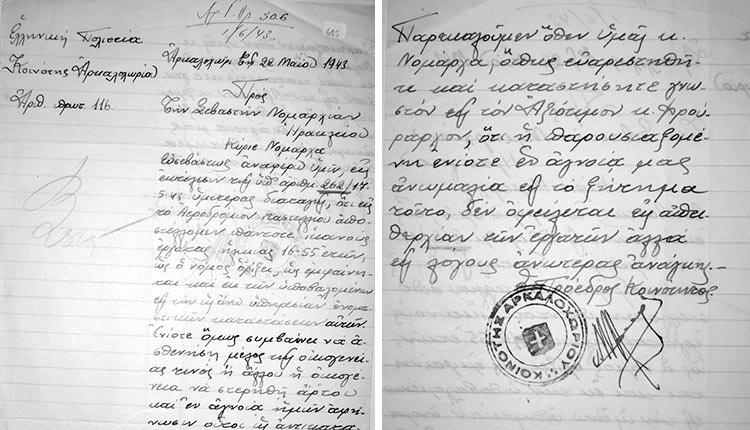 Αρ. Πρ. 306
1/6/43.
Ἑλληνική Πολιτεία
Κοινότης Ἀρκαλοχωρίου
Ἀριθ. πρωτ. 116.
Ἀρκαλοχώρι τῇ 22 Μαΐου 1943
Πρός
Τήν Σεβαστήν Νομαρχίαν
Ἡρακλείου
Κύριε Νομάρχα
Εὐσεβάστως ἀναφέρω ὑμῖν, εἰς
ἐκτέλεσιν τῆς ὑπ' ἀριθμ. 262/17
5-43 ὑμετέρας διαταγῆς, ὅτι εἰς
τό Ἀεροδρόμιον Καστελλίου ἀπο-
στέλλομεν πάντοτε ἱκανούς
ἐργάτας ἡλικίας 16-55 ἐτῶν,
ὡς ὁ νόμος ὁρίζει, ὡς ἐμφαίνη-
ται καί ἐκ τῶν ὑποβαλλομένων
εἰς τήν ὑπηρεσίαν ὀνομα-
στικῶν καταστάσεων αὐτῶν.
Ἐνίοτε ὅμως συμβαίνει νά ἀ-
σθενήσῃ μέλος τῆς οἰκογενεί-
ας τινός ἤ ἄλλου ἤ οἰκογέ-
νεια νά στερηθῇ ἄρτου
καί ἐν ἀγνοίᾳ ἡμῶν ἀφή-
νωσιν οὗτοι ὡς ἀντικατα-
Παρακαλοῦμεν ὅθεν ὑμᾶς κ.
Νομάρχα, ὅπως εὐαρεστηθῆ-
τε καί καταστήσητε γνω-
στόν εἰς τόν Ἀξιότιμον κ. Φρού-
ραρχον, ὅτι ἡ παρουσιαζομέ-
νη ἐνίοτε ἐν ἀγνοίᾳ μας
ἀνωμαλία εἰς τό ζήτημα
τοῦτο, δέν ὀφείλεται εἰς ἀπει-
θαρχίαν τῶν ἐργατῶν ἀλλά
εἰς λόγους ἀνωτέρας ἀνάγκης.-
Ὁ Πρόεδρος Κοινότητος
ΚΟΙΝΟΤΗΣ ΑΡΚΑΛΟΧΩΡΙΟΥ